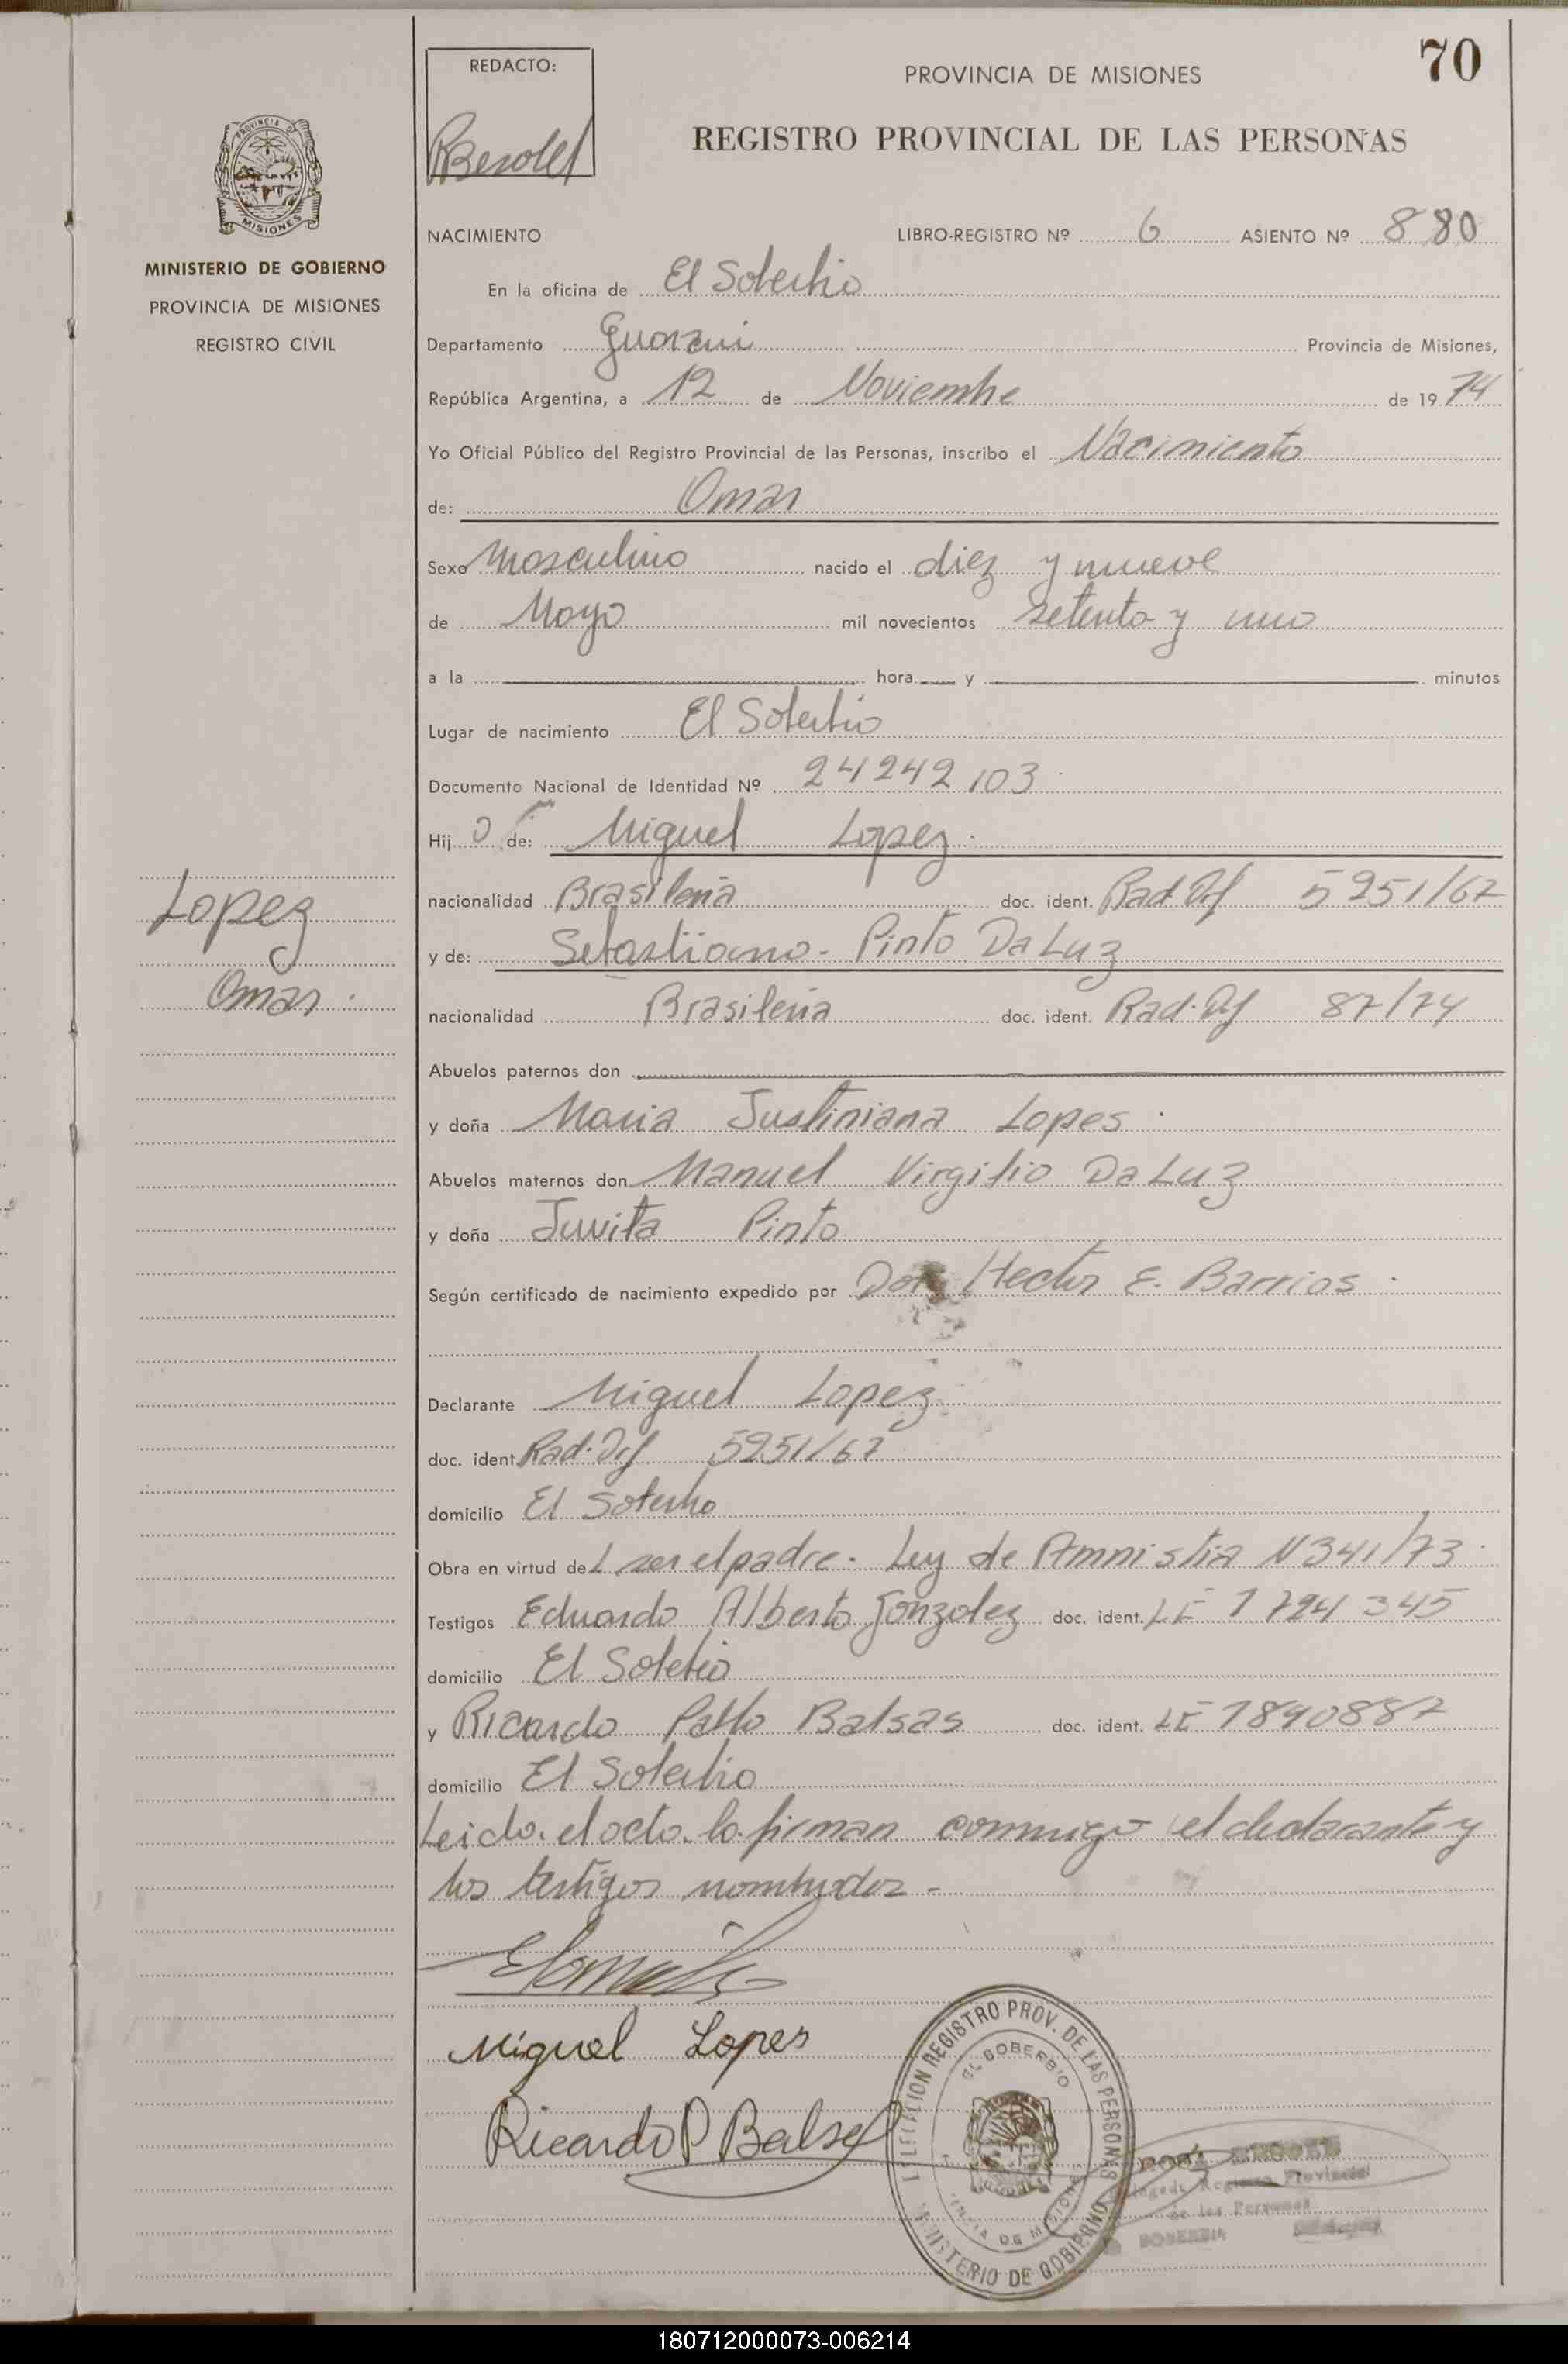 70
REDACTO:
PROVINCIA DE MISIONES
REGISTRO PROVINCIAL DE LAS PERSONAS
MISIONES
MINISTERIO DE GOBIERNO
PROVINCIA DE MISIONES
REGISTRO CIVIL
NACIMIENTO LIBRO-REGISTRO Nº 6 ASIENTO Nº 880
En la oficina de El Soberbio
Departamento Guarani Provincia de Misiones,
República Argentina, a 12 de Noviembre de 1974
Yo Oficial Público del Registro Provincial de las Personas, inscribo el Nacimiento
de: Omar
Sexo Masculino nacido el diez y nueve
de Mayo mil novecientos setenta y uno
a la hora y minutos
Lugar de nacimiento El Soberbio
Documento Nacional de Identidad Nº 24242103
Hijo de: Miguel Lopez
Lopez
Omar
nacionalidad Brasileña doc. ident. Rad. Def 5251/67
y de: Sebastiana Pinto Da Luz
nacionalidad Brasileña doc. ident. Rad. Def 87/74
Abuelos paternos don
y doña Maria Justiniana Lopes
Abuelos maternos don Manuel Virgilio Da Luz
y doña Juvita Pinto
Según certificado de nacimiento expedido por Hector E. Barrios
Declarante Miguel Lopez
doc. ident. Rad. Def 5251/67
domicilio El Soberbio
Obra en virtud de ser el padre. Ley de Amnistia N 341/73
Testigos Eduardo Alberto Gonzalez doc. ident. LE 1794345
domicilio El Soberbio
y Ricardo Pablo Balsas doc. ident. LE 7890887
domicilio El Soberbio
Leida el acta la firman conmigo el declarante y
los testigos nombrados -
Miguel Lopes
Ricardo P Balsa
DELEGACION REGISTRO PROV. DE LAS PERSONAS
EL SOBERBIO
PROVINCIA DE MISIONES
MINISTERIO DE GOBIERNO
Delegado Registro Provincial
de las Personas
180712000073-006214